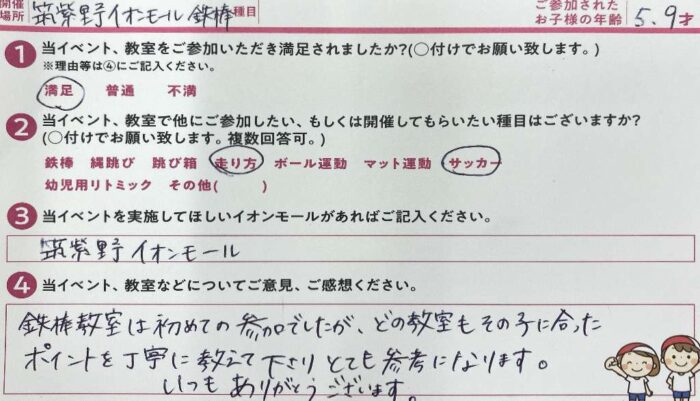 開催場所 筑紫野イオンモール 鉄棒 種目 ご参加された お子様の年齢 5.9才
1 当イベント、教室をご参加いただき満足されましたか?(○付けでお願い致します。)
※理由等は④にご記入ください。
満足 普通 不満
2 当イベント、教室で他にご参加したい、もしくは開催してもらいたい種目はございますか?
(○付けでお願い致します。複数回答可。)
鉄棒 縄跳び 跳び箱 走り方 ボール運動 マット運動 サッカー
幼児用リトミック その他( )
3 当イベントを実施してほしいイオンモールがあればご記入ください。
筑紫野イオンモール
4 当イベント、教室などについてご意見、ご感想ください。
鉄棒教室は初めての参加でしたが、どの教室もその子に合った
ポイントを丁寧に教えて下さりとても参考になります。
いつもありがとうございます。